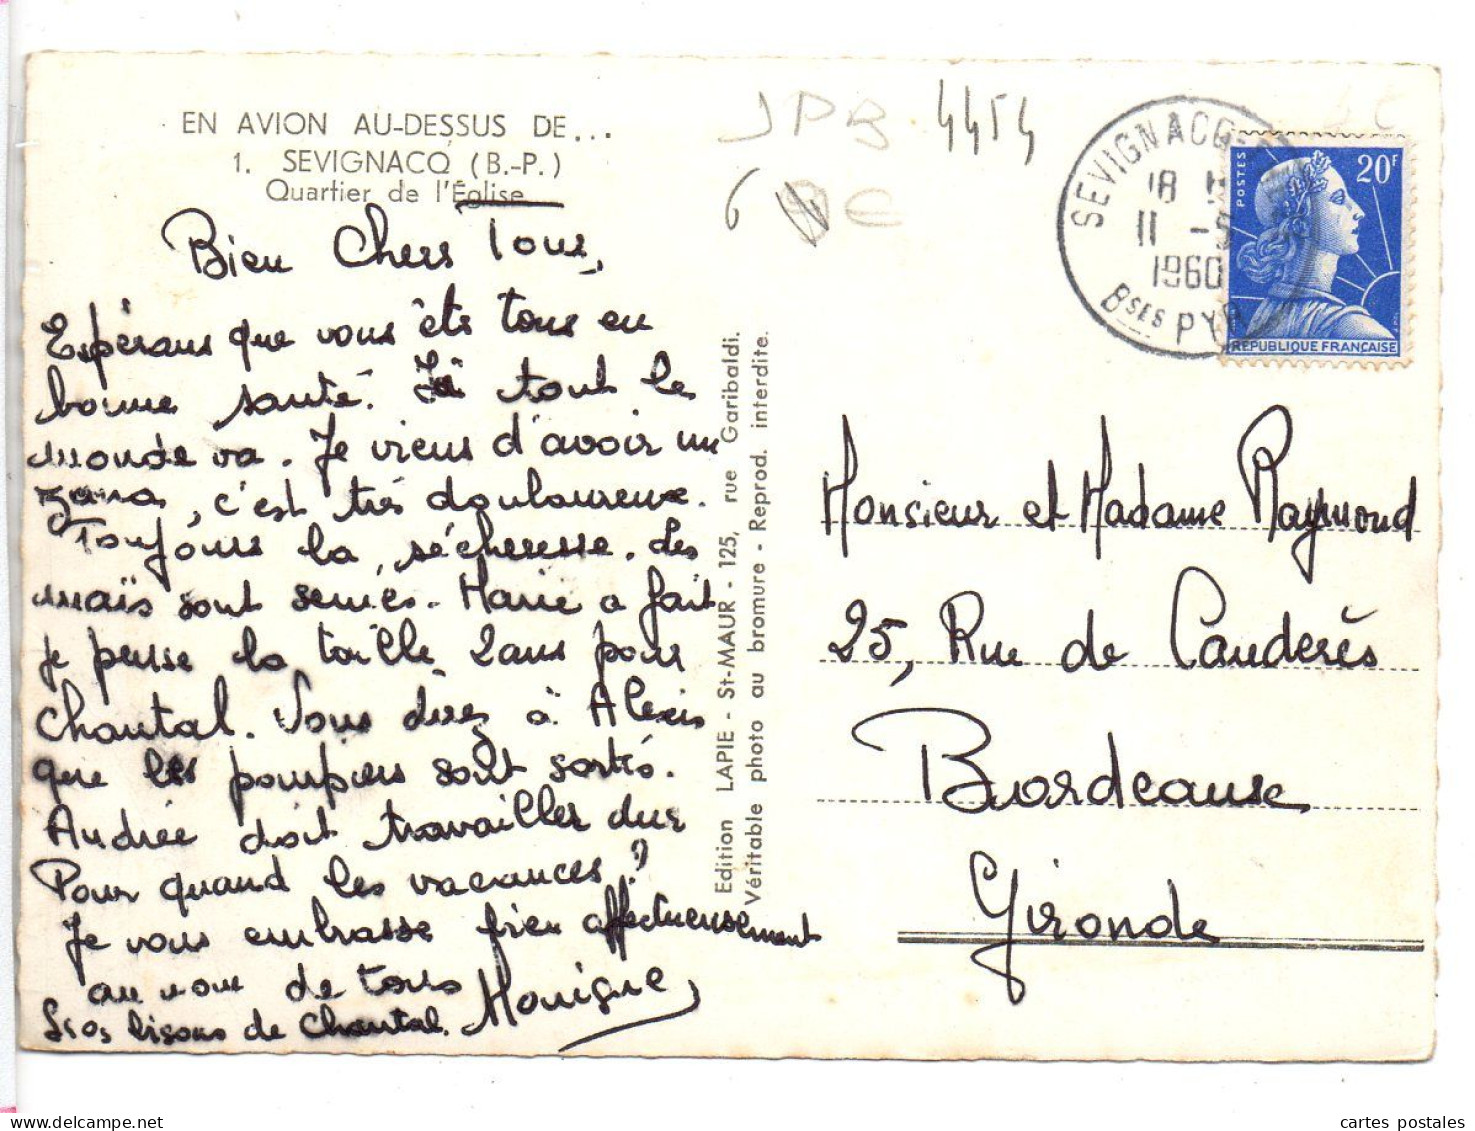 EN AVION AU-DESSUS DE...
1. SEVIGNACQ (B.-P.)
Quartier de l'Église
Bien Chers Tous,
Espérans que vous êts tous en
bonne santé. Ici tout le
monde va. Je viens d'avoir un
zona, c'est très douloureux.
Toujours la sécheresse. Les
maïs sont semés. Marie a fait
je pense la taille 2ans pour
Chantal. Vous direz à Alexis
que les pompiers sont sortis.
Andrée doit travailler dur
Pour quand les vacances?
Je vous embrasse bien affectueusement
au nom de tous Monique
Gros bisous de Chantal.
Edition LAPIE - St-MAUR - 125, rue Garibaldi.
Véritable photo au bromure - Reprod. interdite.
JPB 4454
6 €
SEVIGNACQ
18 H
11 -5
1960
Bses PYR
POSTES
20F
RÉPUBLIQUE FRANÇAISE
Monsieur et Madame Raymond
25, Rue de Cauderès
Bordeaux
Gironde
cartes postales